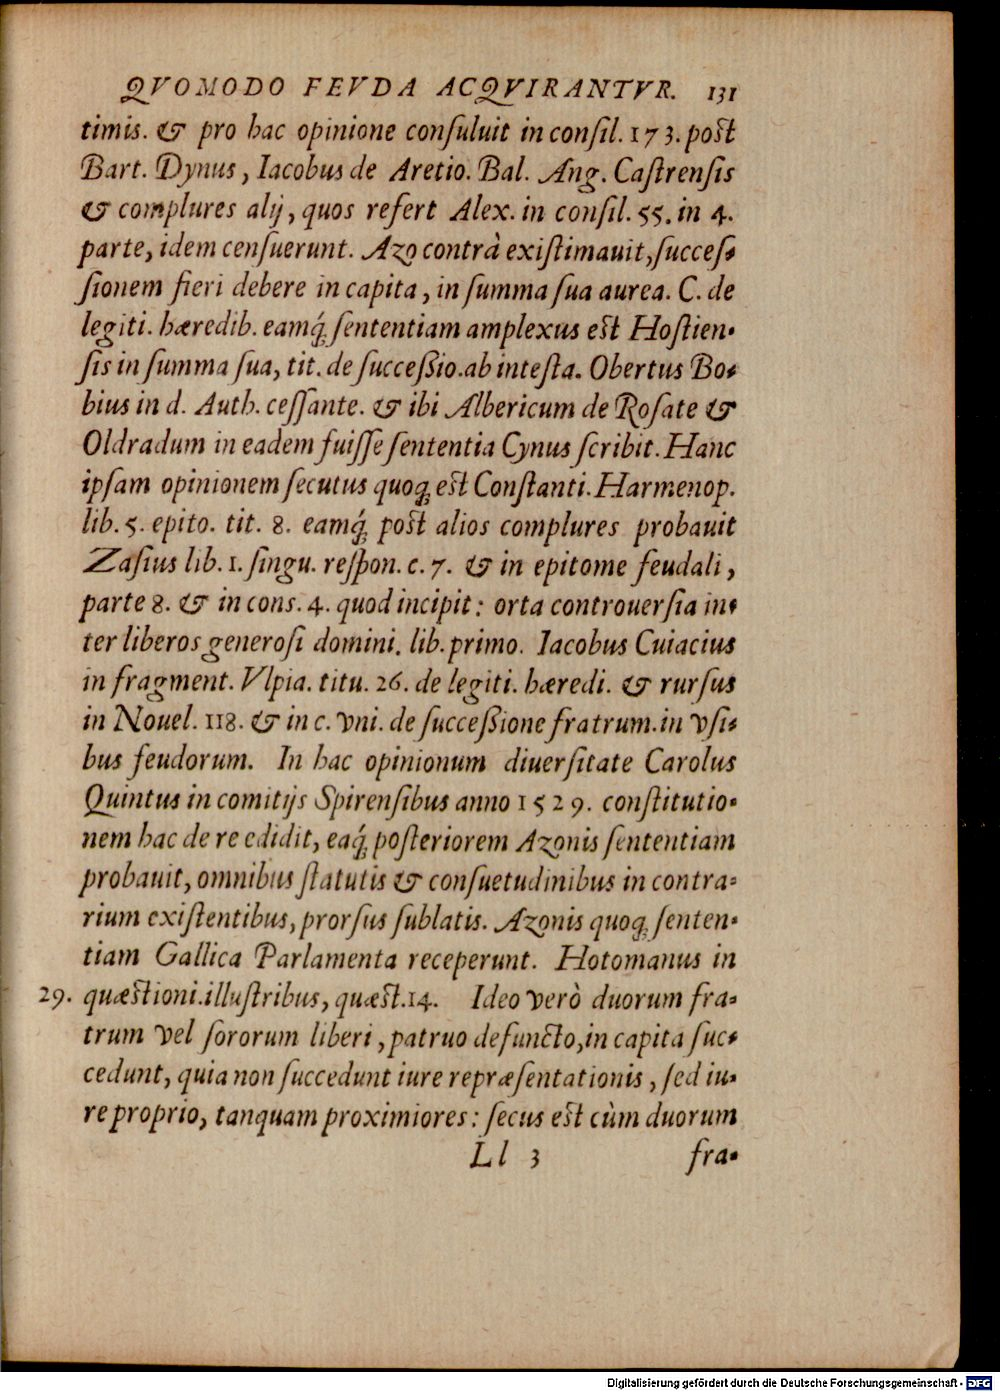 QVOMODO FEVDA ACQVIRANTVR. 131
timis. & pro hac opinione conſuluit in conſil. 173. poſt
Bart. Dynus, Iacobus de Aretio. Bal. Ang. Caſtrenſis
& complures alij, quos refert Alex. in conſil. 55. in 4.
parte, idem cenſuerunt. Azo contrà exiſtimauit, ſucceſ-
ſionem fieri debere in capita, in ſumma ſua aurea. C. de
legiti. hæredib. eamq́ꝫ ſententiam amplexus eſt Hoſtien-
ſis in ſumma ſua, tit. de ſucceßio. ab inteſta. Obertus Bo-
bius in d. Auth. ceſſante. & ibi Albericum de Roſate &
Oldradum in eadem fuiſſe ſententia Cynus ſcribit. Hanc
ipſam opinionem ſecutus quoqꝫ eſt Conſtanti. Harmenop.
lib. 5. epito. tit. 8. eamq́ꝫ poſt alios complures probauit
Zaſius lib. 1. ſingu. reſpon. c. 7. & in epitome feudali,
parte 8. & in cons. 4. quod incipit: orta controuerſia in-
ter liberos generoſi domini. lib. primo. Iacobus Cuiacius
in fragment. Vlpia. titu. 26. de legiti. hæredi. & rurſus
in Nouel. 118. & in c. vni. de ſucceßione fratrum. in vſi-
bus feudorum. In hac opinionum diuerſitate Carolus
Quintus in comitijs Spirenſibus anno 1529. conſtitutio-
nem hac de re edidit, eaq́ꝫ poſteriorem Azonis ſententiam
probauit, omnibus ſtatutis & conſuetudinibus in contra-
rium exiſtentibus, prorſus ſublatis. Azonis quoqꝫ ſenten-
tiam Gallica Parlamenta receperunt. Hotomanus in
29. quæſtioni. illuſtribus, quæſt. 14. Ideo verò duorum fra-
trum vel ſororum liberi, patruo defuncto, in capita ſuc-
cedunt, quia non ſuccedunt iure repræſentationis, ſed iu-
re proprio, tanquam proximiores: ſecus eſt cùm duorum
Ll 3 fra-
Digitalisierung gefördert durch die Deutsche Forschungsgemeinschaft - DFG